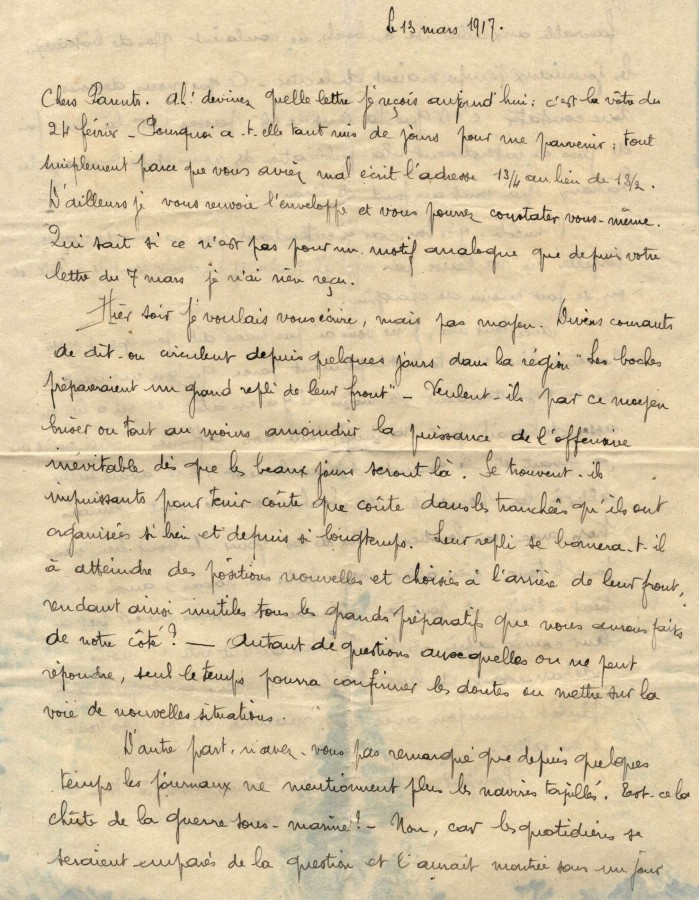 le 13 mars 1917.
Chers Parents. Ah! devinez quelle lettre je reçois aujourd'hui : c'est la vôtre du
24 févrir - Pourquoi a-t-elle tant mis de jours pour me parvenir : tout
simplement parce que vous aviez mal écrit l'adresse 13/4 au lieu de 13/2.
D'ailleurs je vous renvoie l'enveloppe et vous pourrez constater vous-même.
Qui sait si ce n'est pas pour un motif analogue que depuis votre
lettre du 7 mars je n'ai rien reçu.
Hier soir je voulais vous écrire, mais pas moyen. Divers courants
de dit-on circulent depuis quelques jours dans la région "Les boches
prépareraient un grand repli de leur front" - Veulent-ils par ce moyen
briser ou tout au moins amoindrir la puissance de l'offensive
inévitable dès que les beaux jours seront là. Se trouvent-ils
impuissants pour tenir coûte que coûte dans les tranchées qu'ils ont
organisées si bien et depuis si longtemps. Leur repli se bornera-t-il
à atteindre des positions nouvelles et choisies à l'arrière de leur front,
rendant ainsi inutiles tous les grands préparatifs que nous aurons faits
de notre côté? — Autant de questions auxquelles on ne peut
répondre, seul le temps pourra confirmer les doutes ou mettre sur la
voie de nouvelles situations.
D'autre part, n'avez-vous pas remarqué que depuis quelques
temps les journaux ne mentionnent plus les navires torpillés. Est-ce la
chûte de la guerre sous-marine? - Non, car les quotidiens se
seraient emparés de la question et l'aurait montrée sous un jour